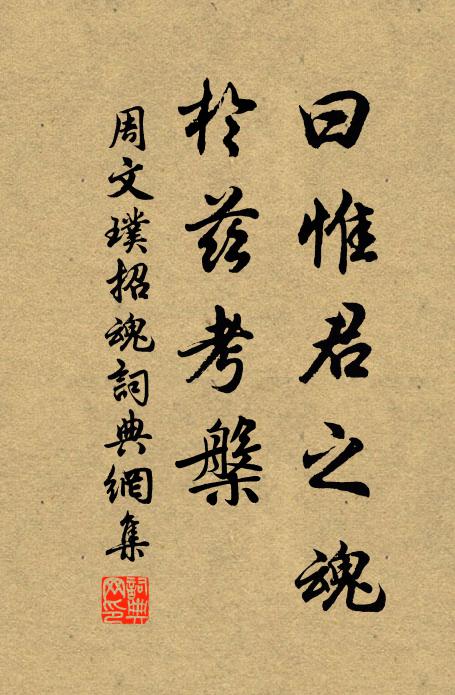 曰惟君之魂
於茲考槃
周文璞招魂詞典網集
詞典网印